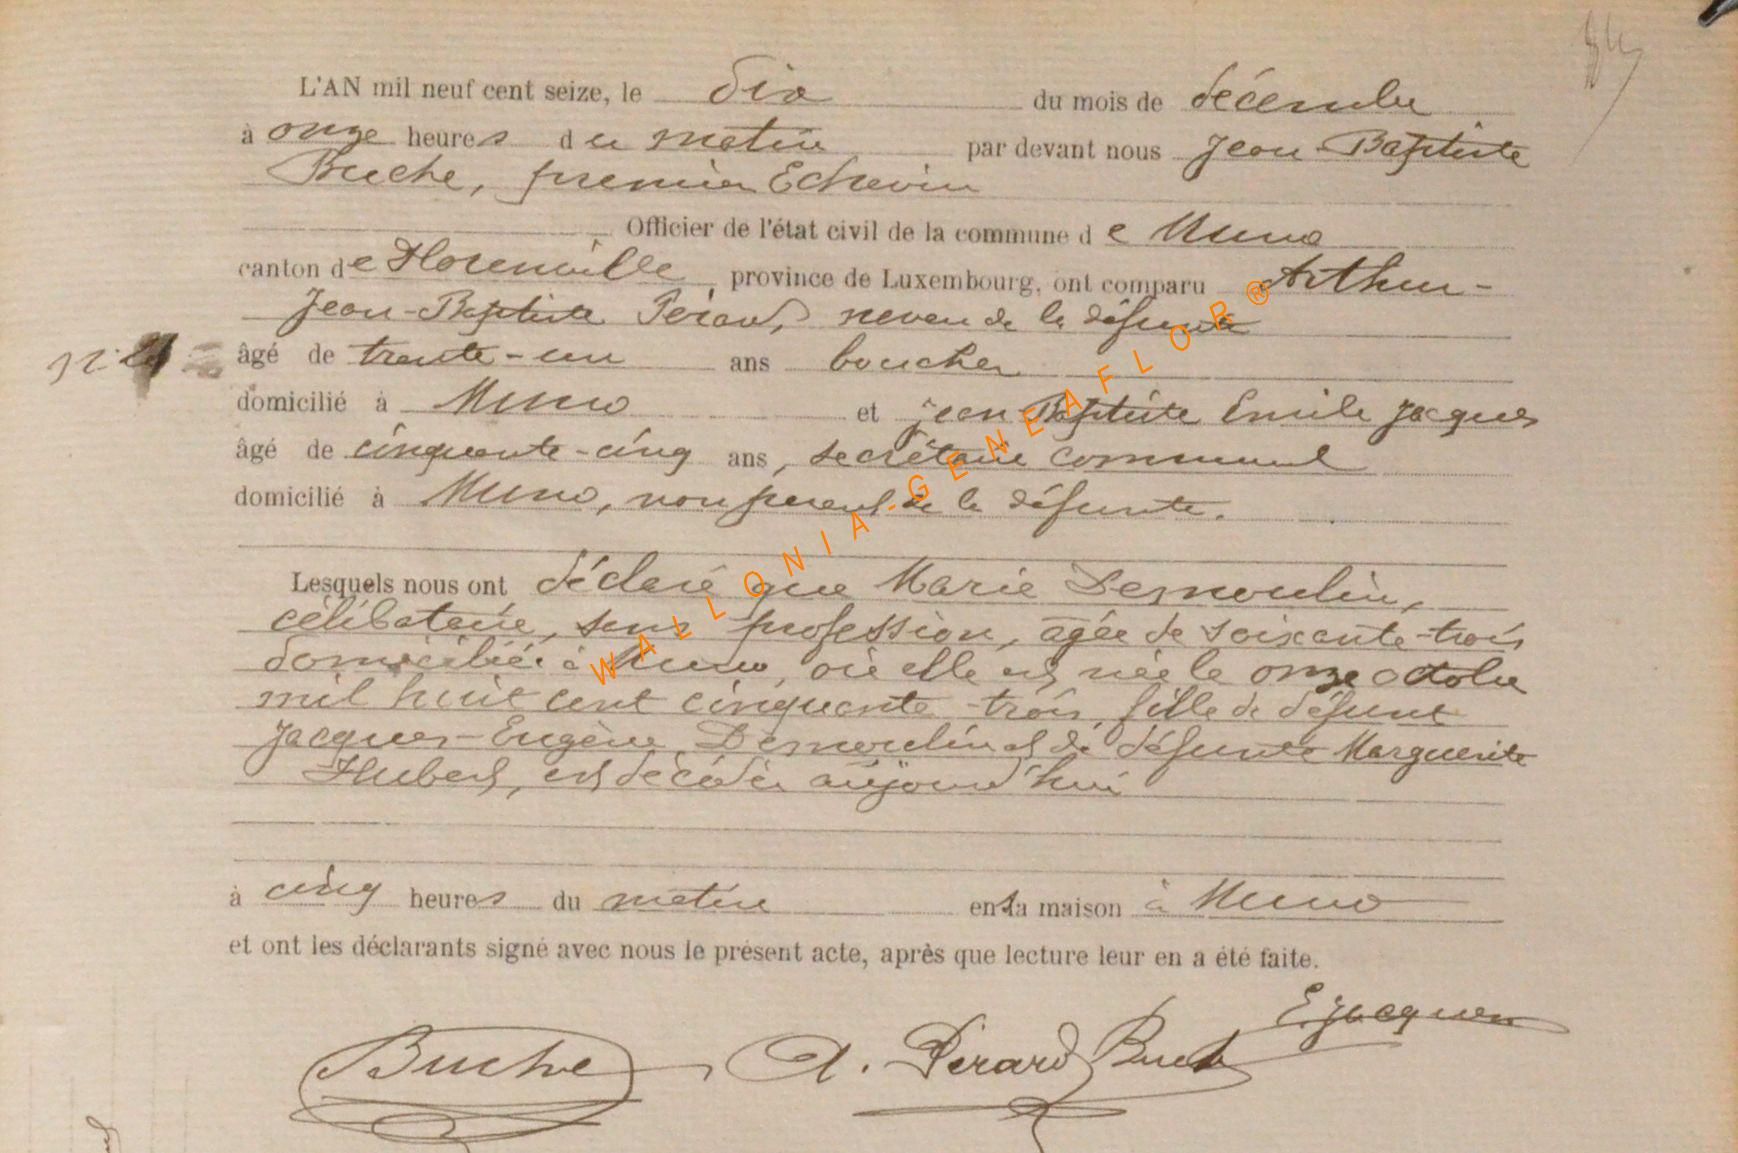 L'AN mil neuf cent seize, le dix du mois de décembre
à onze heures du matin par devant nous Jean-Baptiste
Buche, premier Echevin
Officier de l'état civil de la commune de Muno
canton de Florenville, province de Luxembourg, ont comparu Arthur-
Jean-Baptiste Pérard, neveu de la défunte
âgé de trente-un ans boucher
domicilié à Muno et Jean-Baptiste Emile Jacques
âgé de cinquante-cinq ans, secrétaire communal
domicilié à Muno, non parent de la défunte.
Lesquels nous ont déclaré que Marie Desmoulin,
célibataire, sans profession, âgée de soixante-trois
domiciliée à Muno, où elle est née le onze octobre
mil huit cent cinquante-trois, fille de défunt
Jacques-Eugène Demoulin et de défunte Marguerite
Hubert, est décédée aujourd'hui
à cinq heures du matin en sa maison à Muno
et ont les déclarants signé avec nous le présent acte, après que lecture leur en a été faite.
E. Jacques
Buche A. Pérard Buch
WALLONIA-GENEAFLOR®